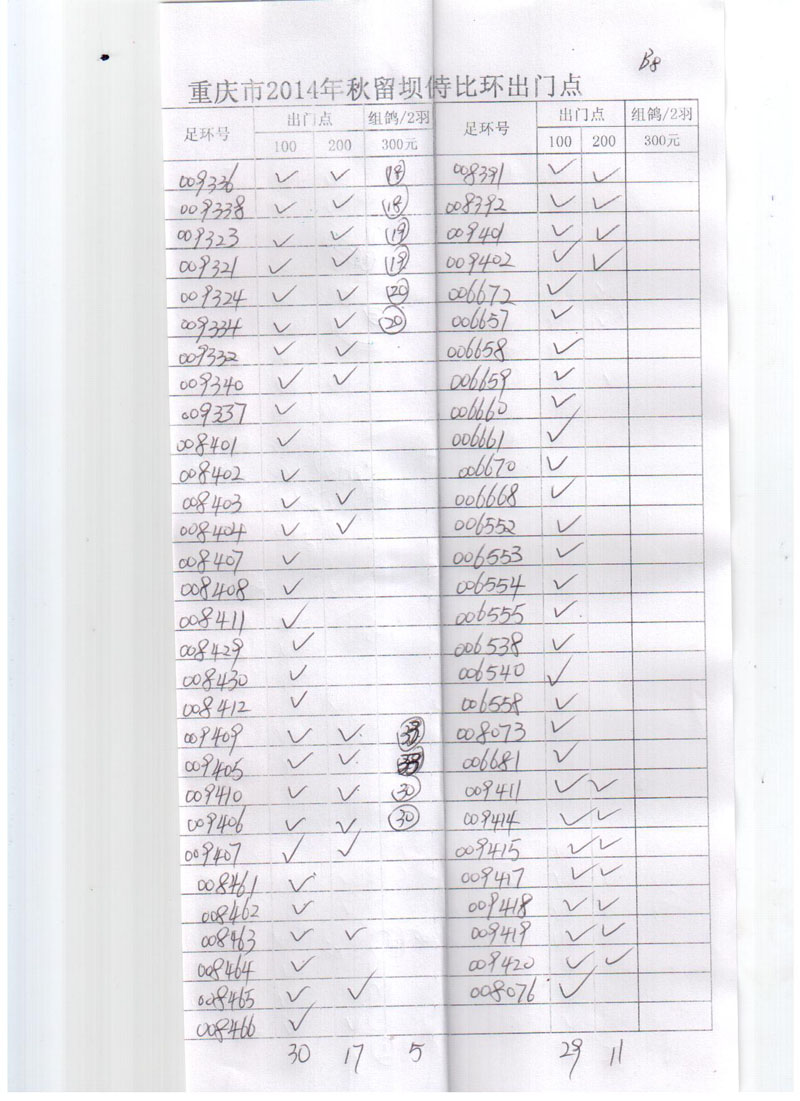 B8
重庆市2014年秋留坝特比环出门点
足环号 出门点 组鸽/2羽 足环号 出门点 组鸽/2羽
100 200 300元 100 200 300元
009336 ✓ ✓ 18 008391 ✓ ✓
009338 ✓ ✓ 18 008392 ✓ ✓
009323 ✓ ✓ 19 009401 ✓ ✓
009321 ✓ ✓ 19 009402 ✓ ✓
009324 ✓ ✓ 20 006672 ✓
009334 ✓ ✓ 20 006657 ✓
009332 ✓ ✓ 006658 ✓
009340 ✓ ✓ 006659 ✓
009337 ✓ 006660 ✓
008401 ✓ 006661 ✓
008402 ✓ 006670 ✓
008403 ✓ ✓ 006668 ✓
008404 ✓ ✓ 006552 ✓
008407 ✓ 006553 ✓
008408 ✓ 006554 ✓
008411 ✓ 006555 ✓
008429 ✓ 006538 ✓
008430 ✓ 006540 ✓
008412 ✓ 006558 ✓
009409 ✓ ✓ 008073 ✓
009405 ✓ ✓ 006681 ✓
009410 ✓ ✓ 30 009411 ✓ ✓
009406 ✓ ✓ 30 009414 ✓ ✓
009407 ✓ ✓ 009415 ✓ ✓
008461 ✓ 009417 ✓ ✓
008462 ✓ 009418 ✓ ✓
008463 ✓ ✓ 009419 ✓ ✓
008464 ✓ 009420 ✓ ✓
008465 ✓ ✓ 008076 ✓
008466 ✓
30 17 5 29 11